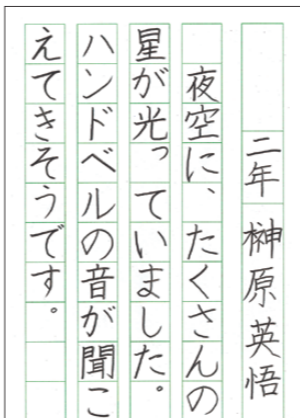 二年 榊原英悟
夜空に、たくさんの
星が光っていました。
ハンドベルの音が聞こ
えてきそうです。